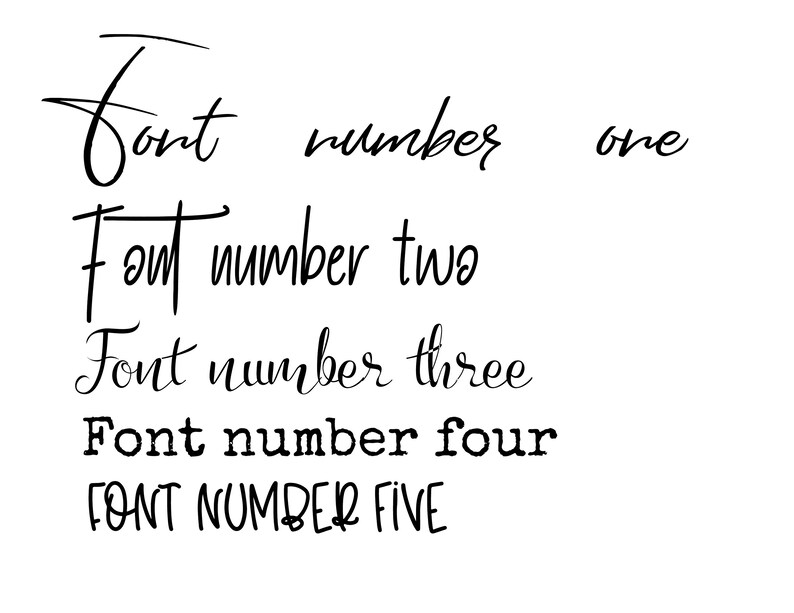 Font number one
Font number two
Font number three
Font number four
FONT NUMBER FiVE